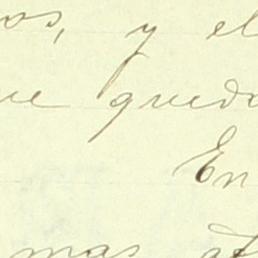 os, y el
ue queda
En
mas at